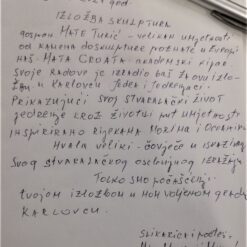 god.
IZLOŽBA SKULPTURA
gospon MATE TURIĆ - VELIKAN UMJETNOSTI
OD KAMENA DO SKULPTURE POZNATE U EVROPI
NAŠ - MATA CROATA - AKADEMSKI KIPAR
SVOJE RADOVE JE IZRADIO BAŠ ZA OVU IZLO-
ŽBU U KARLOVCU JEDAN I JEDINI
PRIKAZUJUĆI SVOJ STVARALAČKI ŽIVOT
KROZ ŽIVOTNI PUT UMJETNOSTI
INSPIRIRANO RIJEKAMA MORIMA I
HVALA VELIKI - ČOVJEČE U
SVOG STVARALAČKOG OSEBUJNOG
TOLKO SMO POČAŠĆENI
tvojom IZLOŽBOM U NOM VOLJENOM GRADU
KARLOVCU.
SLIKARICA I